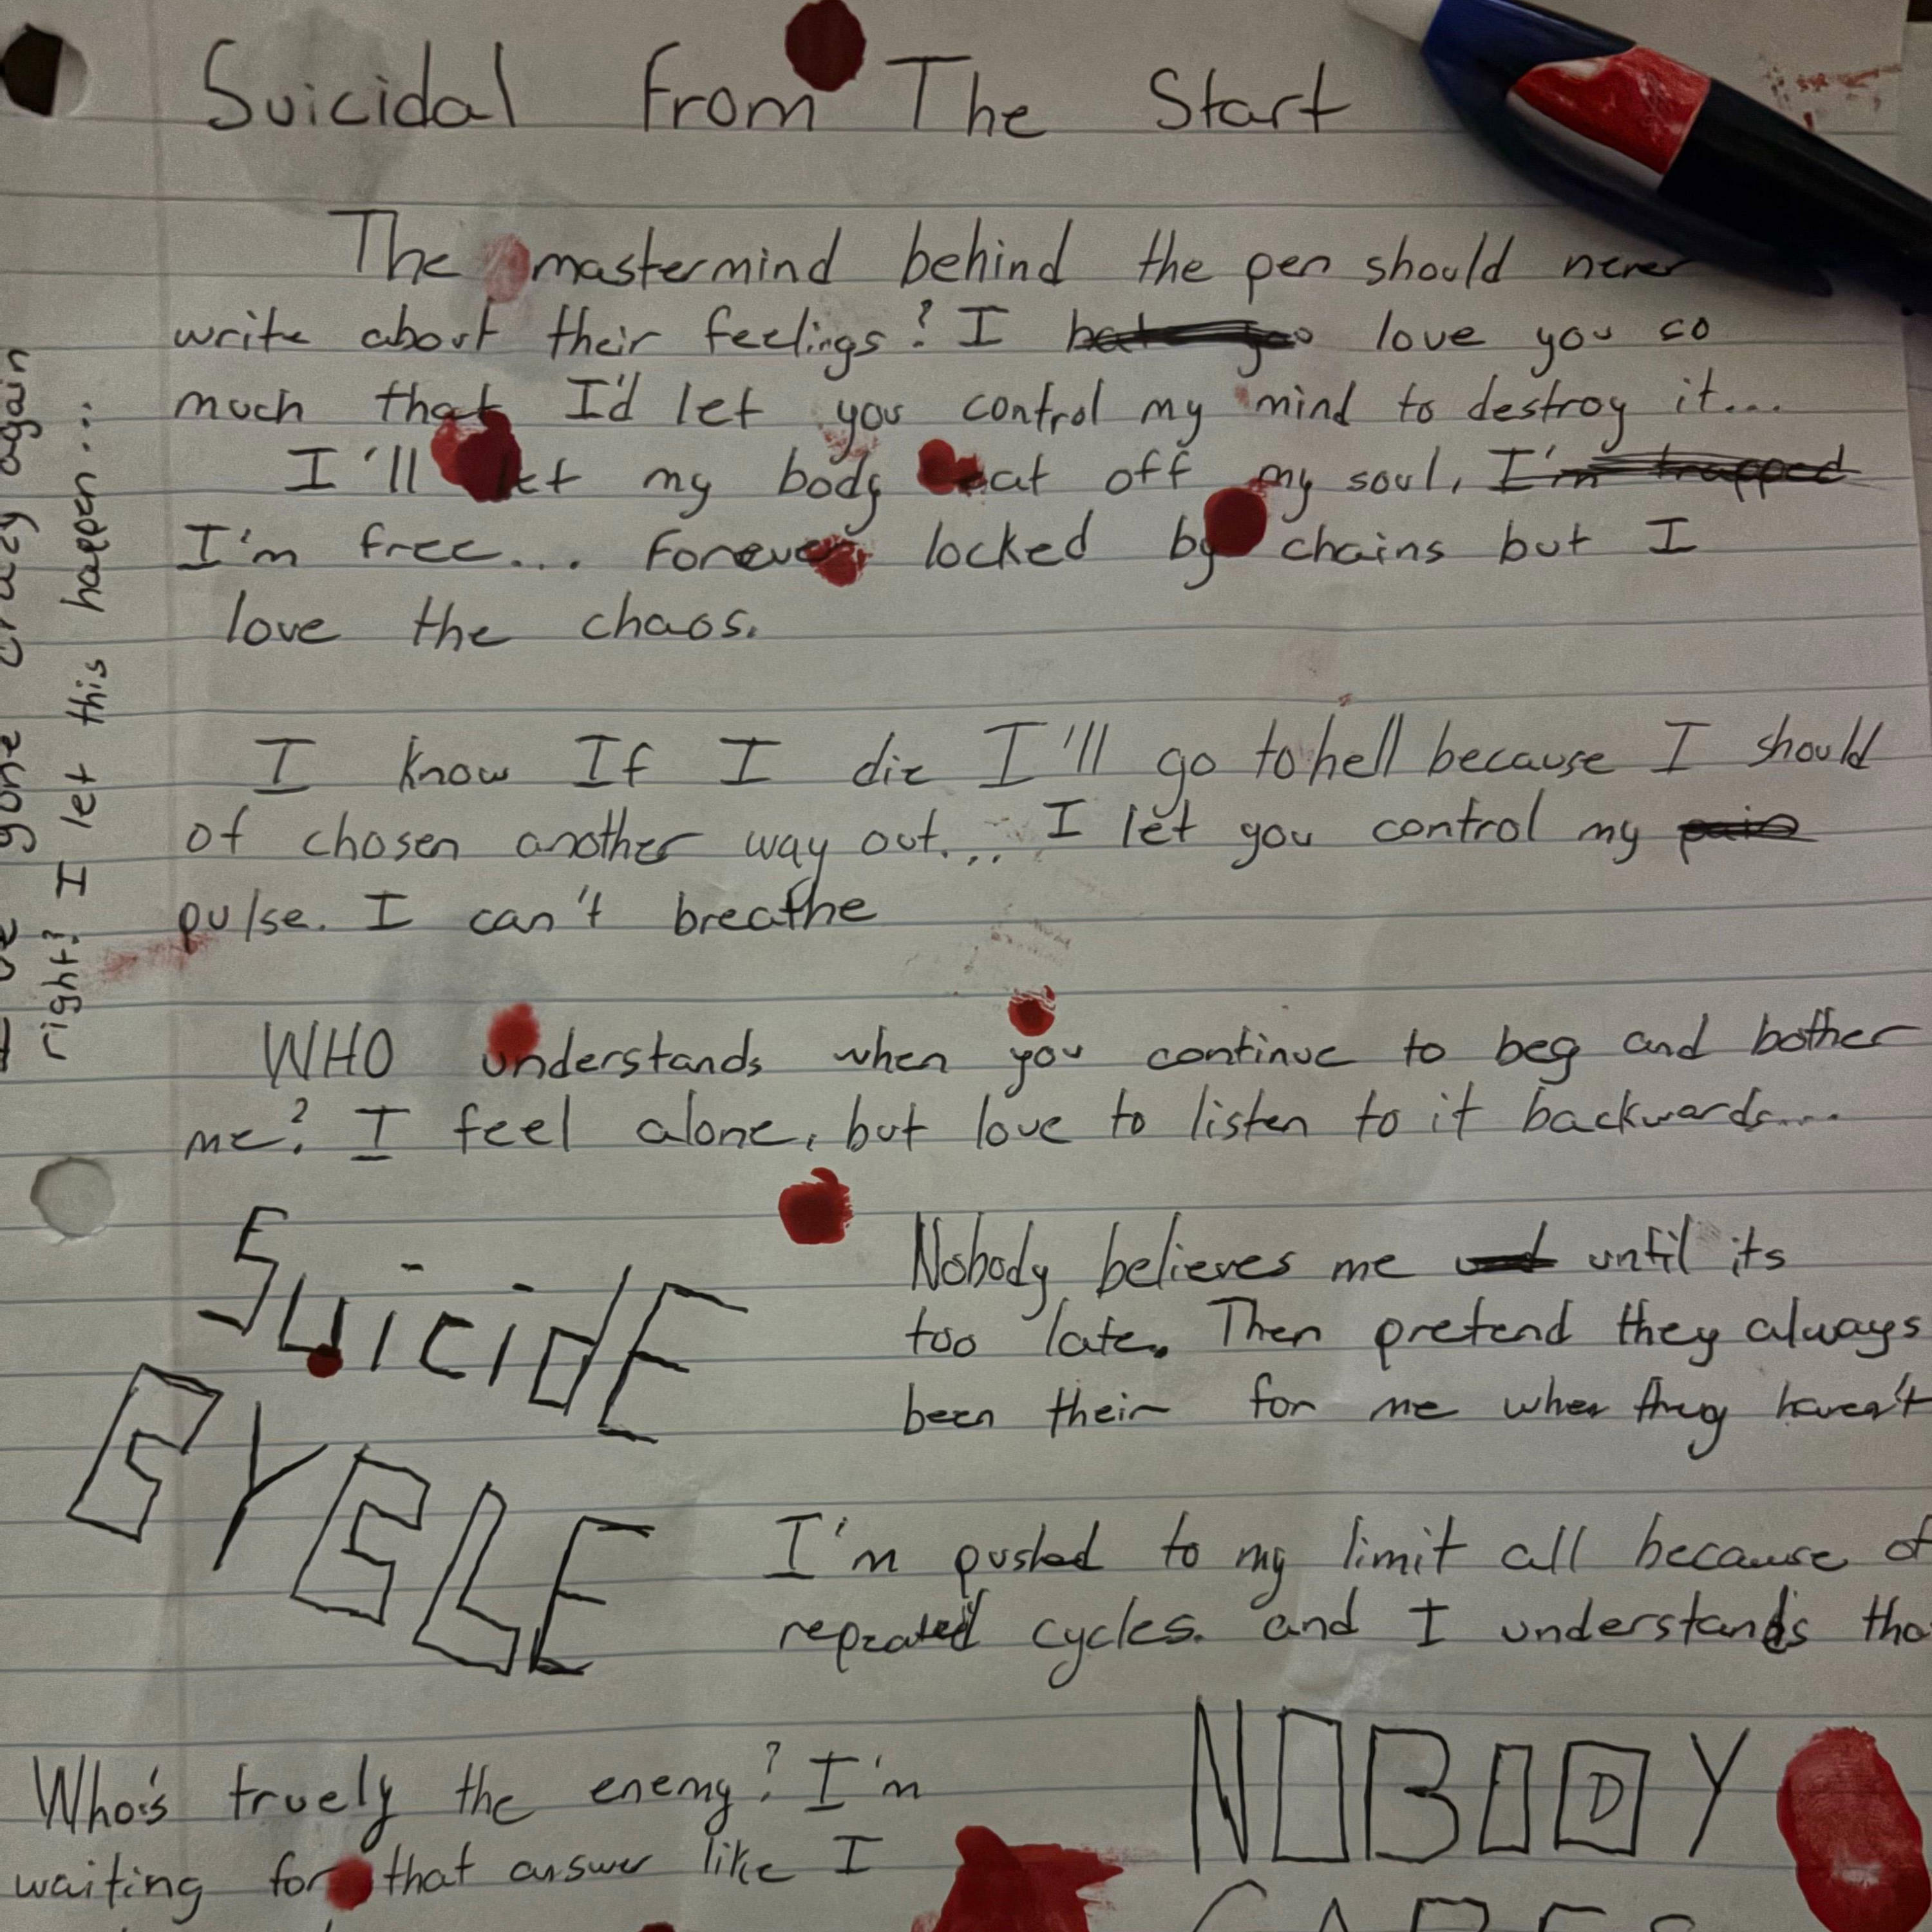 Suicidal From The Start
The mastermind behind the pen should never
write about their feelings? I love you so
much that I'd let you control my mind to destroy it...
I'll let my body eat off my soul, I'm trapped
I'm free... Forever locked by chains but I
love the chaos.
I know If I die I'll go to hell because I should
of chosen another way out... I let you control my pain
pulse. I can't breathe
WHO understands when you continue to beg and bother
me? I feel alone, but love to listen to it backwards...
SuicidE
CYCLE
Nobody believes me until its
too late. Then pretend they always
been their for me when they haven't
I'm pushed to my limit all because of
repeated cycles. and I understands tha
Who's truely the enemy? I'm
waiting for that answer like I
NOBODY
CARES
gone crazy again
right? I let this happen...